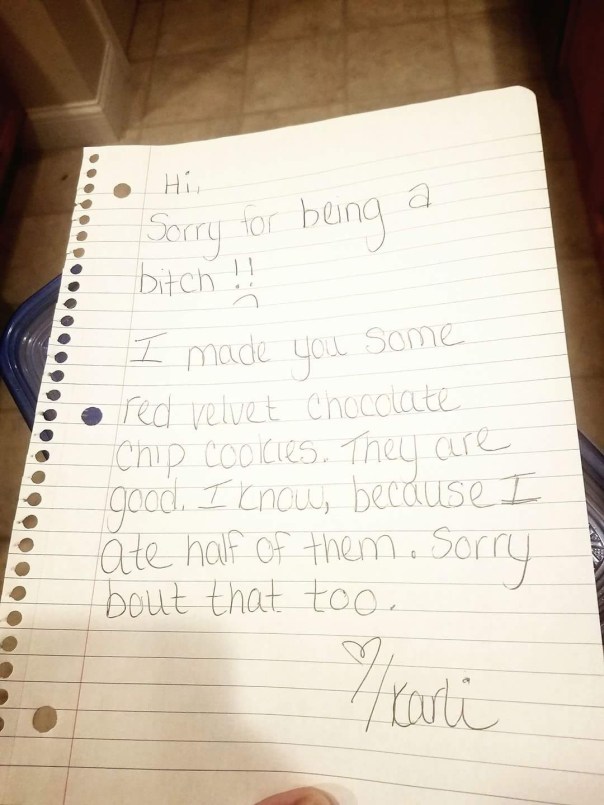 Hi,
Sorry for being a
bitch !!
I made you some
red velvet chocolate
chip cookies. They are
good. I know, because I
ate half of them. Sorry
bout that too.
♡/Karli